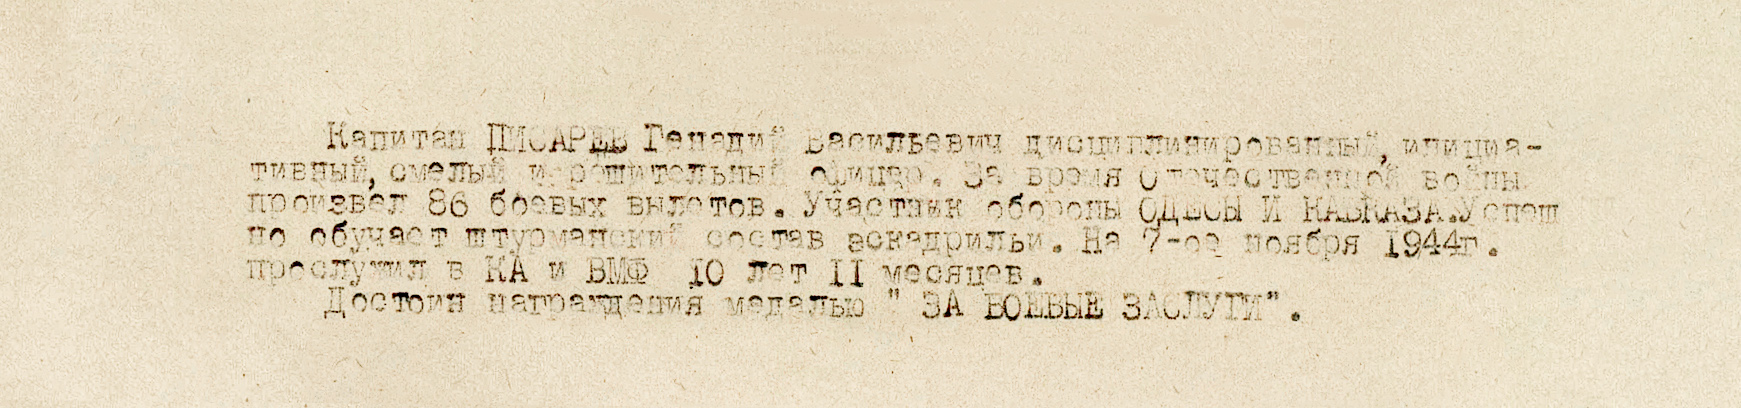 Капитан ПИСАРЕВ Генадий Васильевич дисциплинированный, инициа-
тивный, смелый и решительный офицер. За время Отечественной войны
произвел 86 боевых вылетов. Участник обороны ОДЕСЫ И КАВКАЗА.Успеш
но обучает штурманский состав эскадрильи. На 7-ое ноября 1944г.
прослужил в КА и ВМФ 10 лет II месяцев.
Достоин награждения медалью " ЗА БОЕВЫЕ ЗАСЛУГИ".